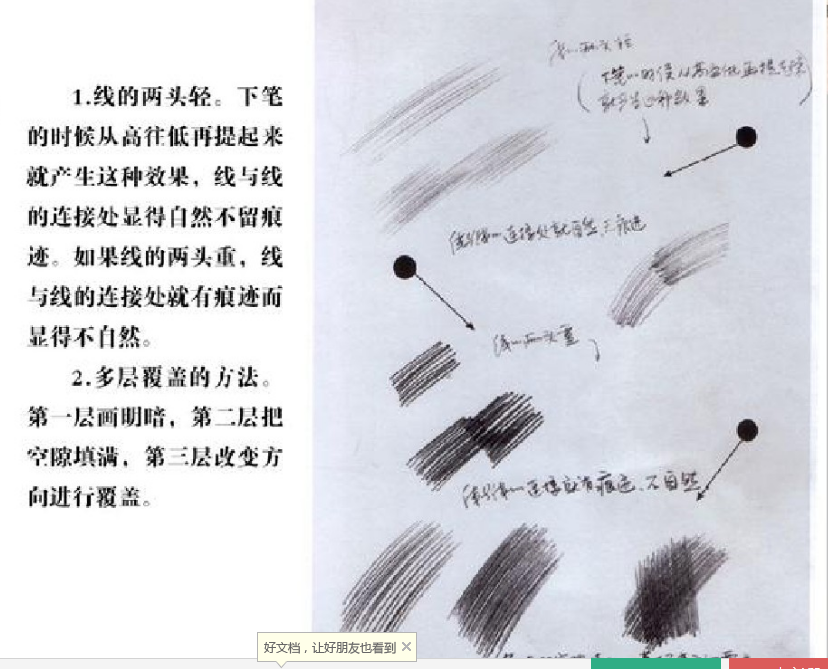 1.线的两头轻。下笔
的时候从高往低再提起来
就产生这种效果，线与线
的连接处显得自然不留痕
迹。如果线的两头重，线
与线的连接处就有痕迹而
显得不自然。
2.多层覆盖的方法。
第一层画明暗，第二层把
空隙填满，第三层改变方
向进行覆盖。
线的两头轻
下笔的时候从高空低再提起来
就产生这种效果
线与线的连接处就自然无痕迹
线的两头重
线与线的连接就有痕迹、不自然
好文档，让好朋友也看到